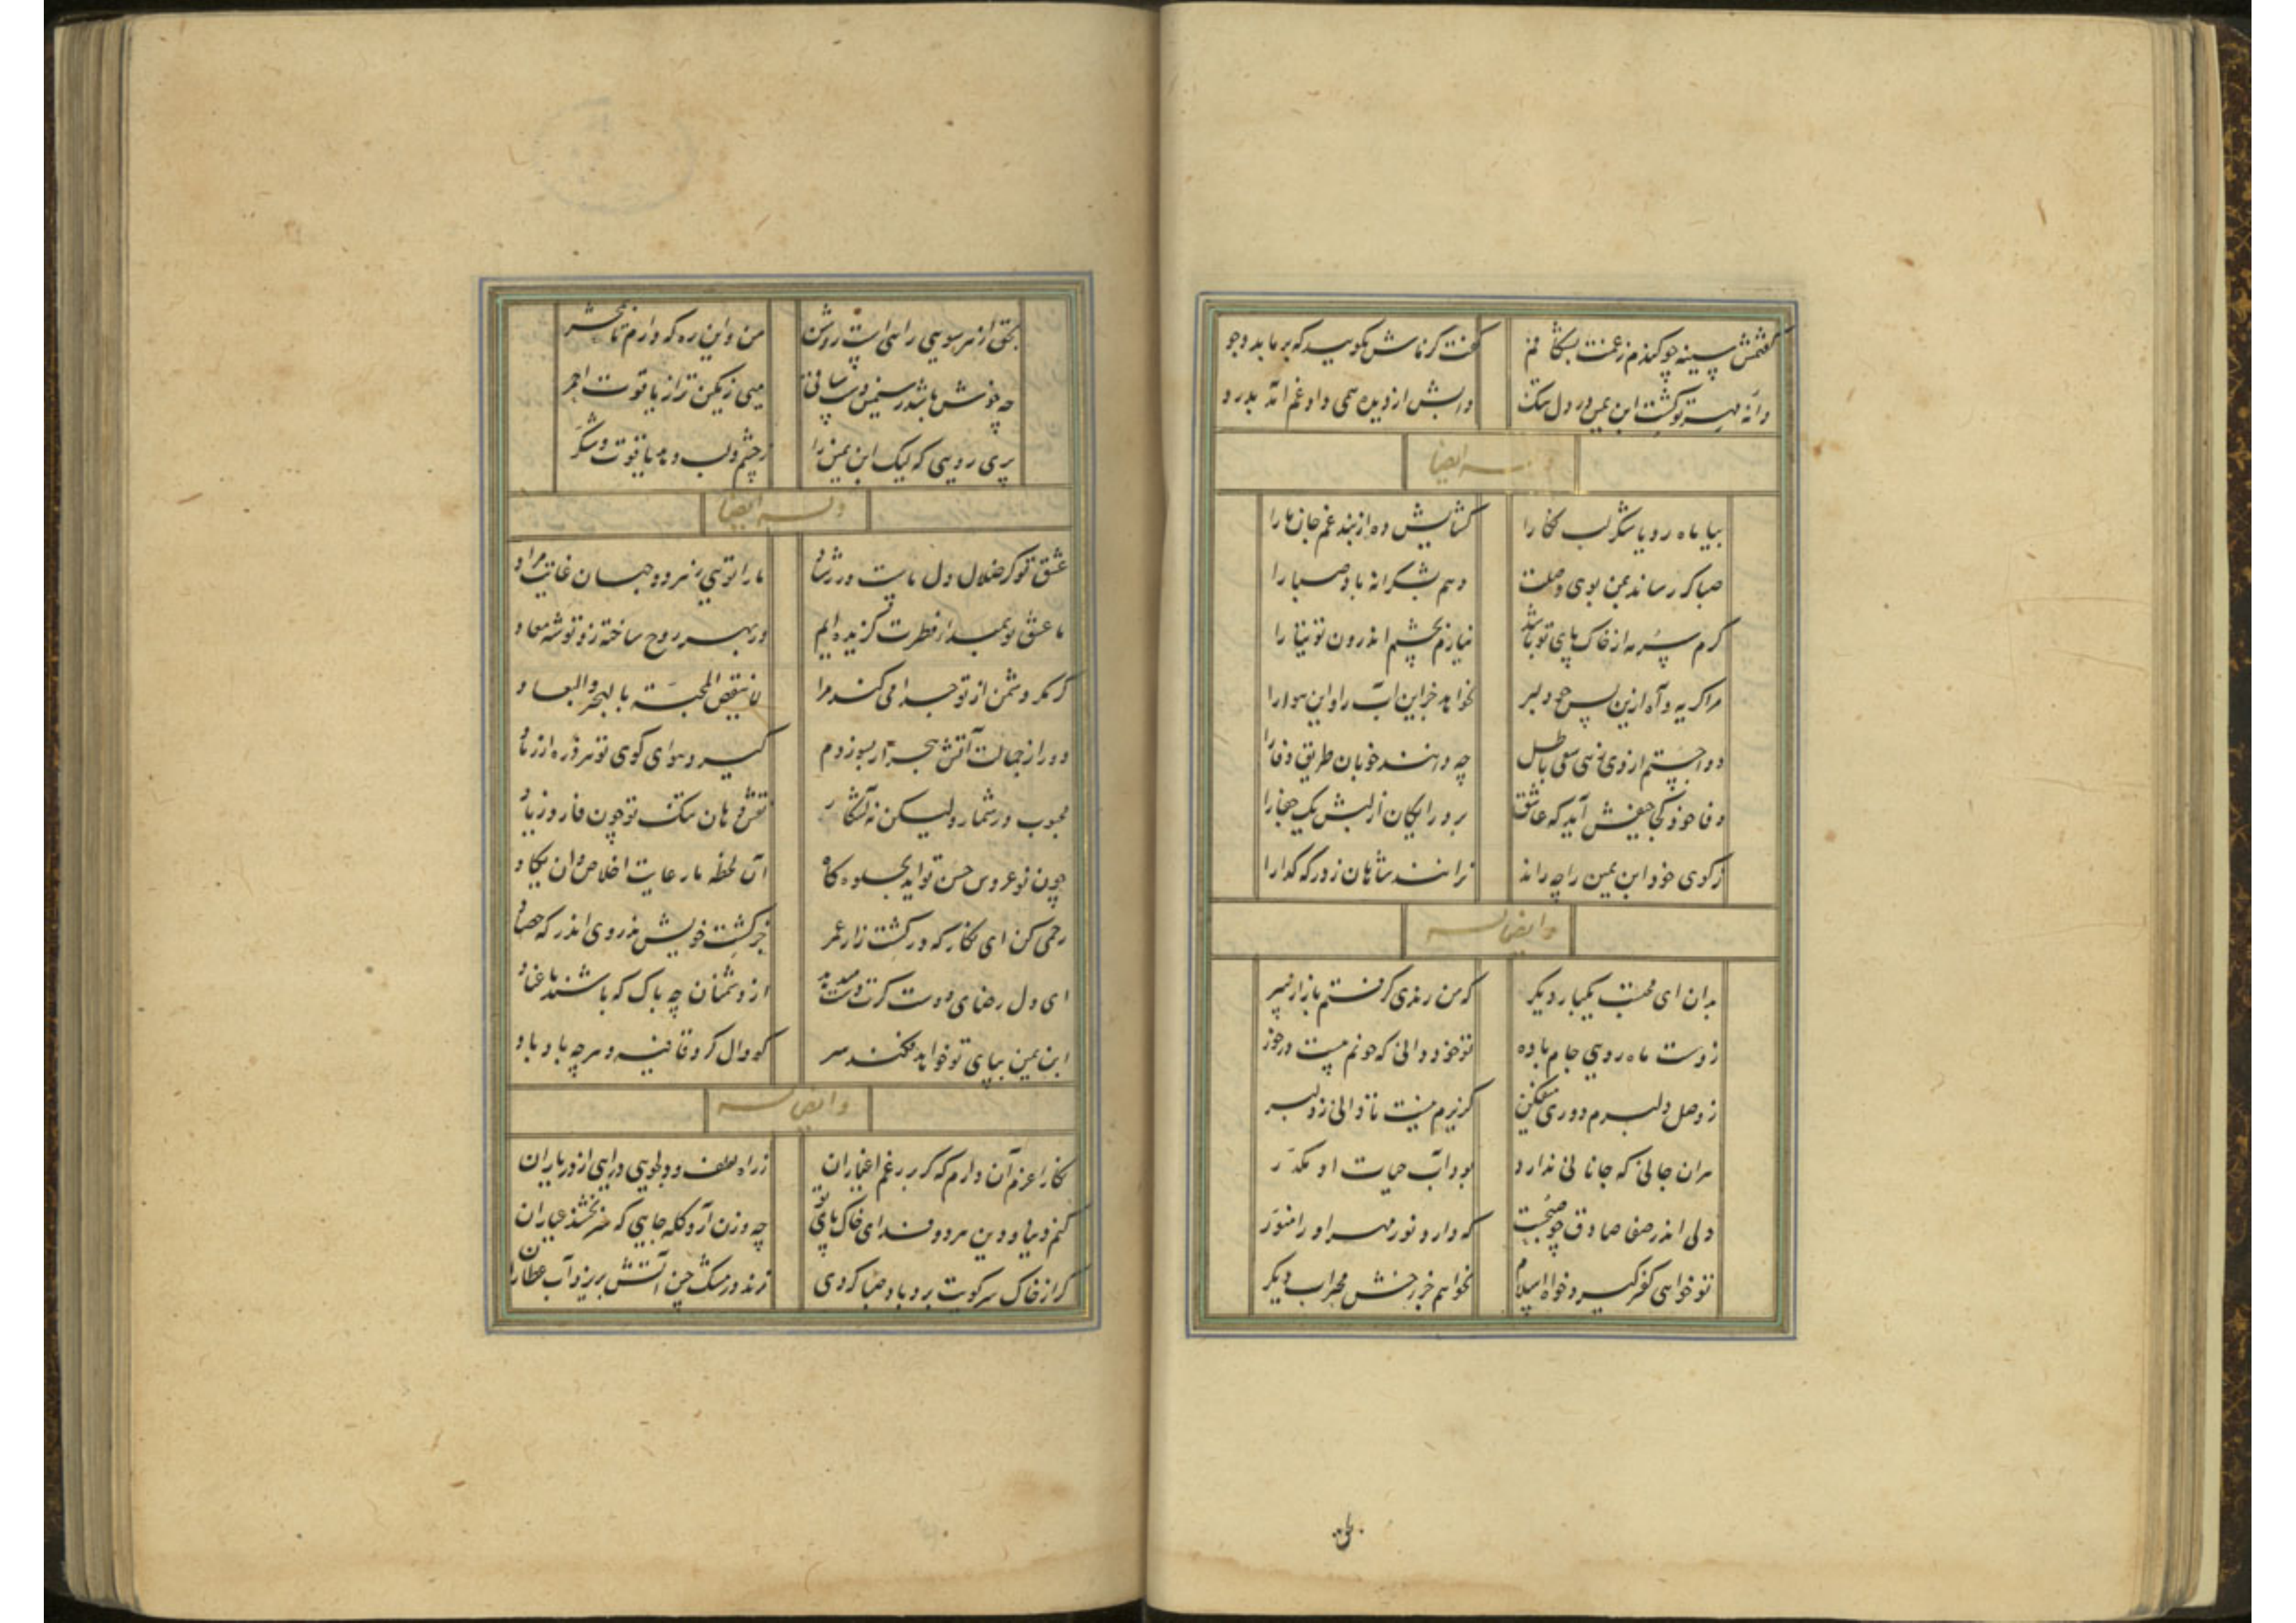 گفتمش سینه چو گندم ز غمت بشکافم گفت گر ماش بگویید که بر ما به دو جو
دانه مهر تو کشت ابن یمین در دل تنگ وابش از دیده همی داد و غم آمد بدرو
وله ایضا
بیا ماه رویا شکر لب نگارا گشایش ده از بند غم جان ما را
صبا گر رساند بمن بوی وصلت دهم شکرانه باد صبا را
گرم سرمه از خاک پای تو باشد نیارم بچشم اندرون توتیا را
مرا گریه و آه ازین پس چو دلبر نخواهد جز این آب را و این هوا را
دوا جستم از وی زهی سعی باطل چه دانند خوبان طریق وفا را
وفا خود کجا حیفش آید که عاشق برد رایگان از لبش یک جفا را
ز کوی خود ابن یمین را چه راند نرانند شاهان ز درگه گدا را
وایضا له
بدان ای محتسب یکبار دیگر که من رندی گرفتم باز از سر
ز دست ماه رویی جام باده تو خود دانی که چونم هست درخور
ز وصل دلبرم دوری میفکن گریزم نیست تا دانی ز دلبر
هر آن جانی که جانانی ندارد بود آب حیات او مکدر
دلی اندر صفا صادق چو صبحست که دارد نور مهر او را منور
تو خواهی کفر گیر و خواه اسلام نخواهم جز رخش محراب دیگر
بحق از هر سویی راهی است روشن من و این ره که دارم تا بمحشر
چه خوش باشد ز سیمین دست ساقی میی رنگین تر از یاقوت احمر
پری رویی که لیک ابن یمین را ز چشم و لب دهد یاقوت و شکر
وله ایضا
عشق تو گر ضلال دل ماست ور رشاد ما را تویی ز هر دو جهان غایت مراد
ما عشق تو بمبدا فطرت گزیده ایم وز بهر روح ساخته زو توشه معاد
گر مکر دشمن از تو جدا می کند مرا ما ینقص المحبة بالهجر والبعاد
دور از جمالت آتش هجر ار بسوزدم گیرد هوای کوی تو هر ذره از رماد
محبوب در شمار ولیکن نه آشکار نقش دهان تنگ تو چون فا روز یاد
چون نوعروس حسن تو آید بجلوه گاه آن لحظه ما رعایت اخلاص و ان یکاد
رحمی کن ای نگار که در کشت زار عمر جز کشت خویش ندروی اندر گه حصاد
ای دل رضای دوست گرت دست میدهد از دشمنان چه باک که باشند با عناد
ابن یمین بپای تو خواهد فکند سر گو دال گرد قافیه و هر چه باد باد
وایضا له
نگارا عزم آن دارم که گر بر رغم اغیاران ز راه لطف و دلجویی درآیی از در یاران
کنم دنیا و دین هر دو فدای خاک پای تو چه وزن آرد کله جایی که سر بخشند عیاران
گر از خاک سر کویت برد باد صبا گردی زند در مشک چین آتش بریزد آب عطاران
بحق